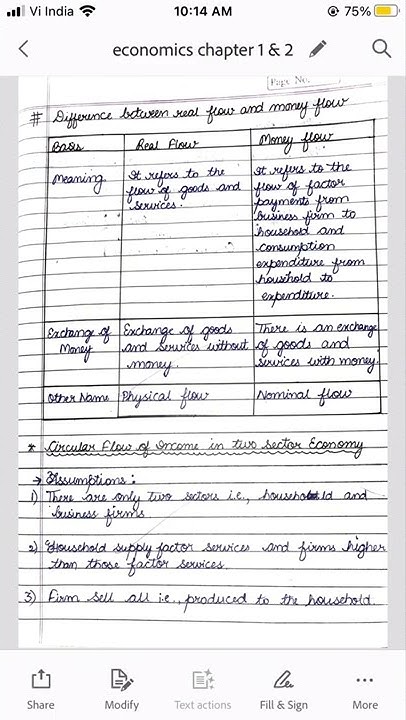 Vi India 10:14 AM 75%
economics chapter 1 & 2
Page No.
# Difference between real flow and money flow
Basis Real Flow Money flow
Meaning It refers to the flow of goods and services. It refers to the flow of factor payments from business firm to household and consumption expenditure from household to expenditure.
Exchange of Money Exchange of goods and services without money. There is an exchange of goods and services with money.
Other Name Physical flow Nominal flow
* Circular Flow of Income in two sector Economy
→ Assumptions :
1) There are only two sectors i.e., household and
business firms
2) Household supply factor services and firms higher
than those factor services.
3) Firm sell all i.e., produced to the household.
Share Modify Text actions Fill & Sign More